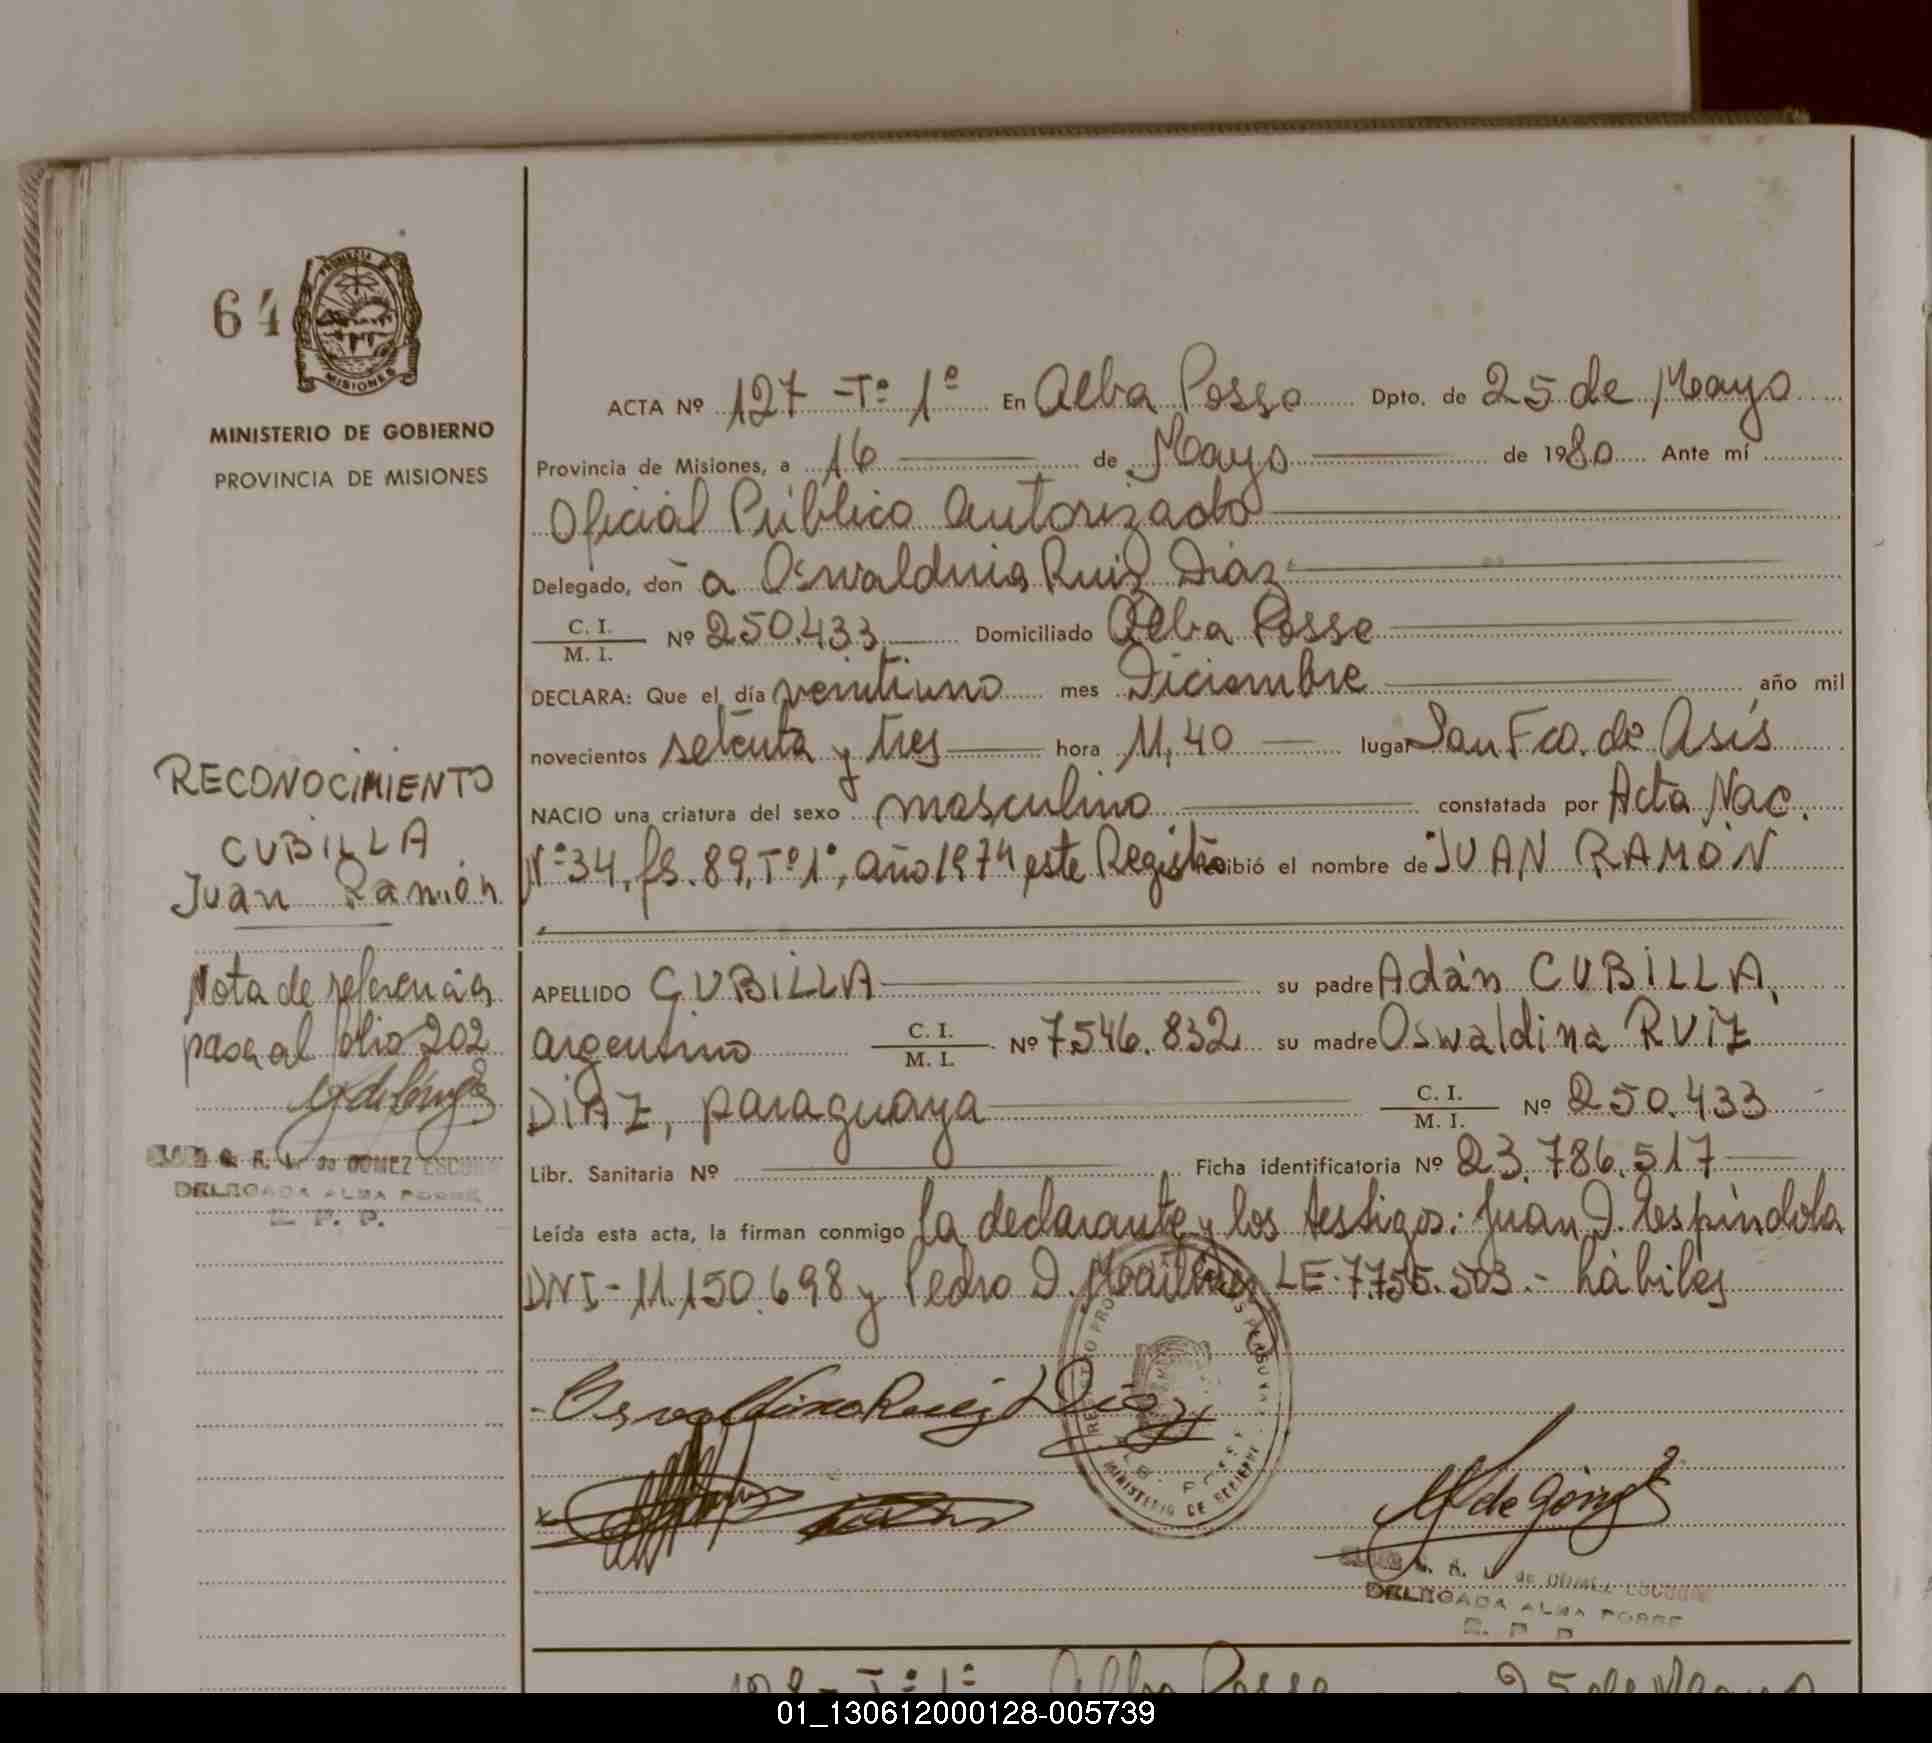 64
PROVINCIA DE
MISIONES
MINISTERIO DE GOBIERNO
PROVINCIA DE MISIONES
RECONOCIMIENTO
CUBILLA
Juan Ramón
Nota de referencia
pasa al folio 202
DE GOMEZ
DELEGADA ALBA POSSE
ACTA Nº 127 -Tº 1º En Alba Posse Dpto. de 25 de Mayo
Provincia de Misiones, a 16 de Mayo de 1980 Ante mí
Oficial Público Autorizado
Delegado, don a Oswaldina Ruiz Diaz
C. I.
M. I. Nº 250.433 Domiciliado Alba Posse
DECLARA: Que el día veintiuno mes Diciembre año mil
novecientos setenta y tres hora 11,40 lugar San Fco. de Asís
NACIO una criatura del sexo masculino constatada por Acta Nac.
Nº 34, fs. 89, Tº 1º, año 1974 este Registro recibió el nombre de JUAN RAMÓN
APELLIDO CUBILLA su padre Adán CUBILLA,
argentino C. I.
M. I. Nº 7.546.832 su madre Oswaldina RUIZ
DIAZ, paraguaya C. I.
M. I. Nº 250.433
Libr. Sanitaria Nº Ficha identificatoria Nº 23.786.517
Leída esta acta, la firman conmigo la declarante y los testigos: Juan D. Espíndola
DNI - 11.150.698 y Pedro D. LE. 7.755.503.- hábiles
Osvaldina Ruiz Diaz
MINISTERIO DE GOBIERNO
M de Gómez
de GOMEZ
DELEGADA ALBA POSSE
Alba Posse 25 de Mayo
01_130612000128-005739